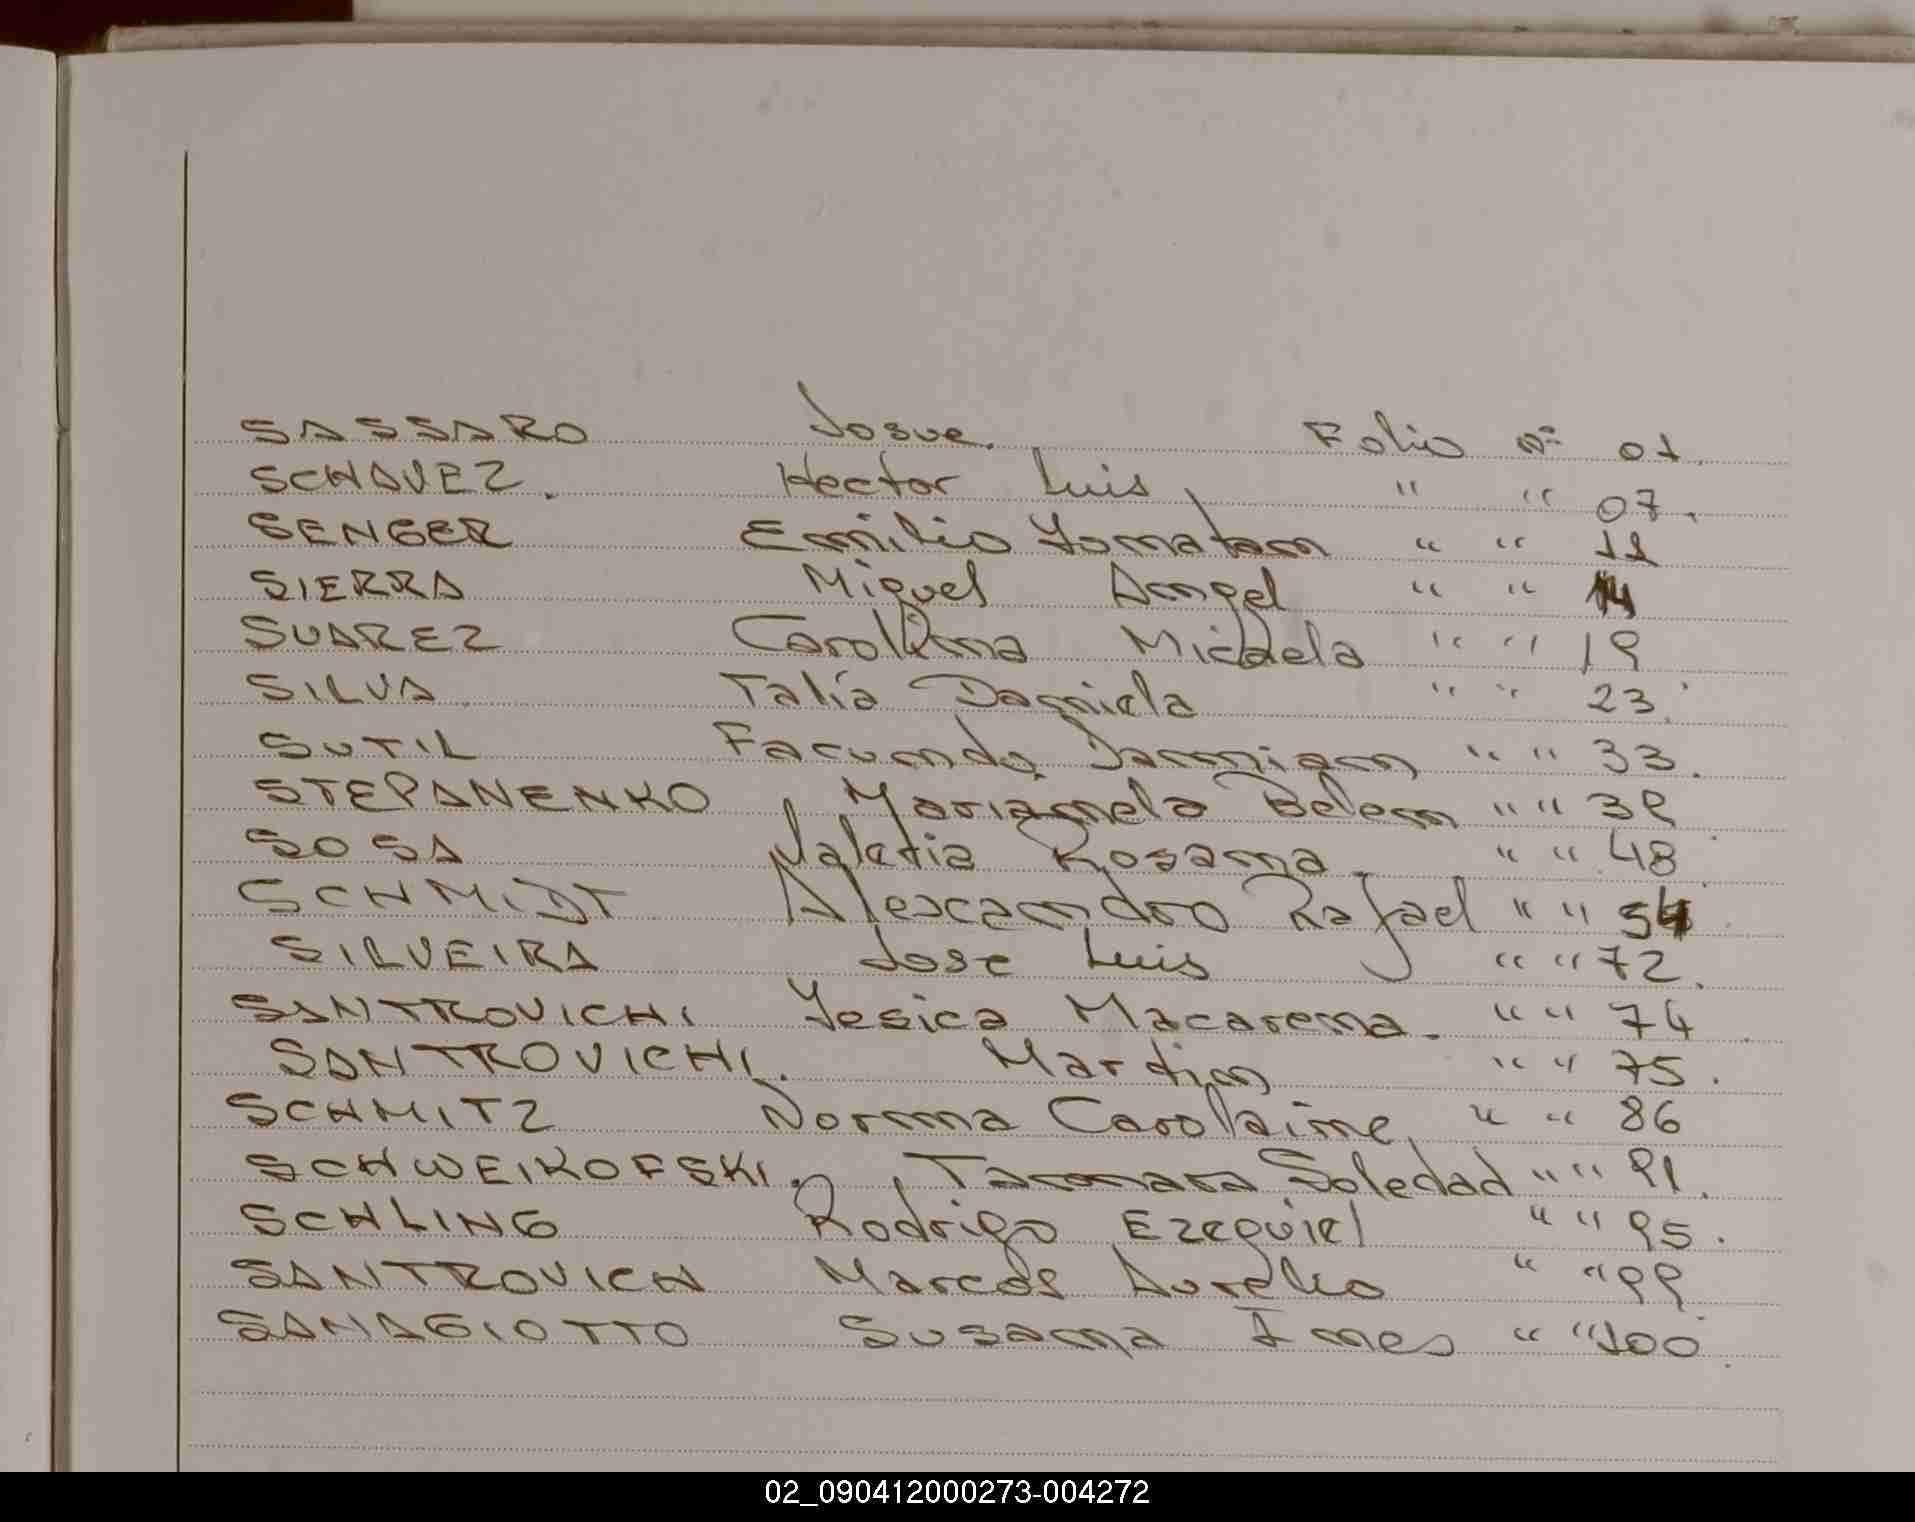 SASSARO Josue. Folio Nº 01.
SCHAVEZ. Hector Luis " " 07.
SENGER Emilio Yonatan " " 11
SIERRA Miguel Angel " " 14
SUAREZ Carolina Micaela " " 19
SILVA Talía Daniela " " 23.
SUTIL Facundo Damian " " 33.
STEPANENKO Marianela Belen " " 39
SOSA Valeria Rosana " " 48
SCHMIDT Alexandro Rafael " " 54
SILVEIRA Jose Luis " " 72.
SANTROVICHI Yesica Macarena. " " 74
SANTROVICHI. Martin " " 75.
SCHMITZ Norma Carolaine " " 86
SCHWEIKOFSKI. Tamara Soledad " " 91.
SCHLING Rodrigo Ezequiel " " 95.
SANTROVICH Marcos Aurelio " " 99
SANAGIOTTO Susana Ines " " 100
02_090412000273-004272